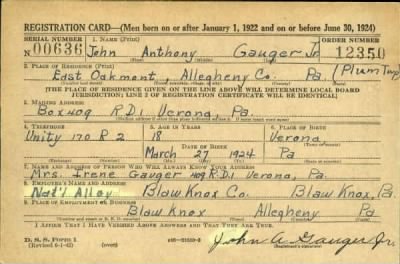 REGISTRATION CARD—(Men born on or after January 1, 1922 and on or before June 30, 1924)
SERIAL NUMBER 1. NAME (Print) ORDER NUMBER
N 00636 John Anthony Gauger Jr 12350
2. PLACE OF RESIDENCE (Print)
East Oakmont, Allegheny Co. Pa. (Plum Twp)
[THE PLACE OF RESIDENCE GIVEN ON THE LINE ABOVE WILL DETERMINE LOCAL BOARD
JURISDICTION; LINE 2 OF REGISTRATION CERTIFICATE WILL BE IDENTICAL]
3. MAILING ADDRESS
Box 409 R.D.1 Verona, Pa.
4. TELEPHONE 5. AGE IN YEARS 6. PLACE OF BIRTH
Unity 170 R 2 18 Verona
DATE OF BIRTH
March 27 1924 Pa
7. NAME AND ADDRESS OF PERSON WHO WILL ALWAYS KNOW YOUR ADDRESS
Mrs. Irene Gauger 409 R.D.1 Verona, Pa.
8. EMPLOYER'S NAME AND ADDRESS
Nat'l Alloy Blaw Knox Co. Blaw Knox, Pa.
9. PLACE OF EMPLOYMENT OR BUSINESS
Blaw Knox Allegheny Pa
I AFFIRM THAT I HAVE VERIFIED ABOVE ANSWERS AND THAT THEY ARE TRUE.
D. S. S. Form 1
(Revised 6-1-42) John A. Gauger Jr.